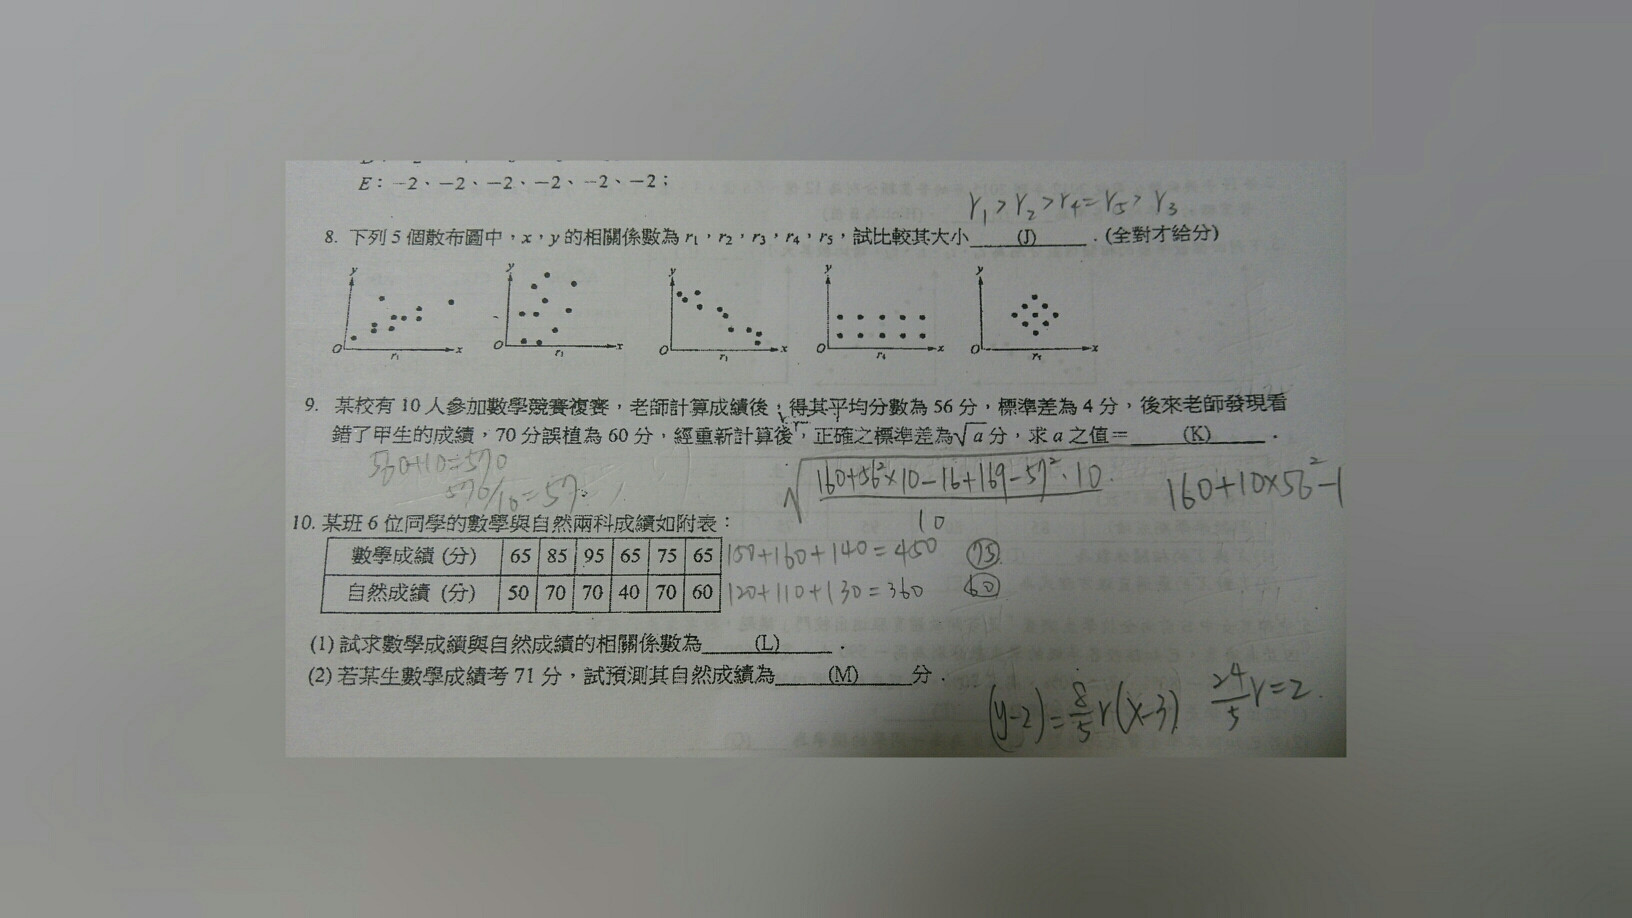 E：−2、−2、−2、−2、−2、−2；
r₁ > r₂ > r₄ = r₅ > r₃
8. 下列 5 個散布圖中，x，y 的相關係數為 r₁，r₂，r₃，r₄，r₅，試比較其大小 (J) ．(全對才給分)
y y y y y
O r₁ x O r₁ x O r₁ x O r₄ x O x
9. 某校有 10 人參加數學競賽複賽，老師計算成績後；得其平均分數為 56 分，標準差為 4 分，後來老師發現看
錯了甲生的成績，70 分誤植為 60 分，經重新計算後，正確之標準差為√a 分，求 a 之值＝ (K) ．
560+10=570
570/10=57
√(160+56²×10−16+169−57²·10 / 10)
160+10×56²−1
10. 某班 6 位同學的數學與自然兩科成績如附表：
數學成績 (分) 65 85 95 65 75 65 150+160+140=450 75
自然成績 (分) 50 70 70 40 70 60 120+110+130=360 60
(1) 試求數學成績與自然成績的相關係數為 (L) ．
(2) 若某生數學成績考 71 分，試預測其自然成績為 (M) 分．
(y−2)=8/5 r(x−3) 24/5 r=2